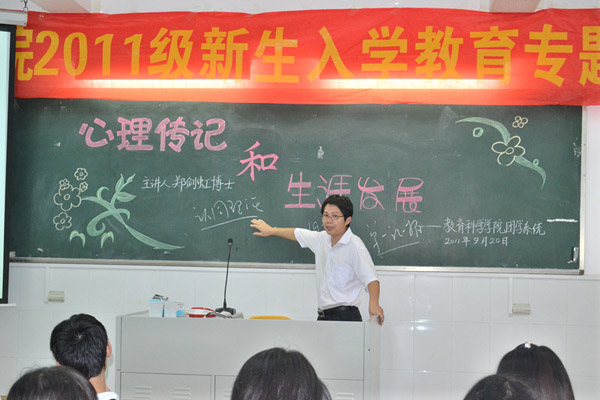 院2011级新生入学教育专题
心理传记
和
生涯发展
主讲人:郑剑虹博士
认同理论
教育科学学院团学系统
2011年9月20日